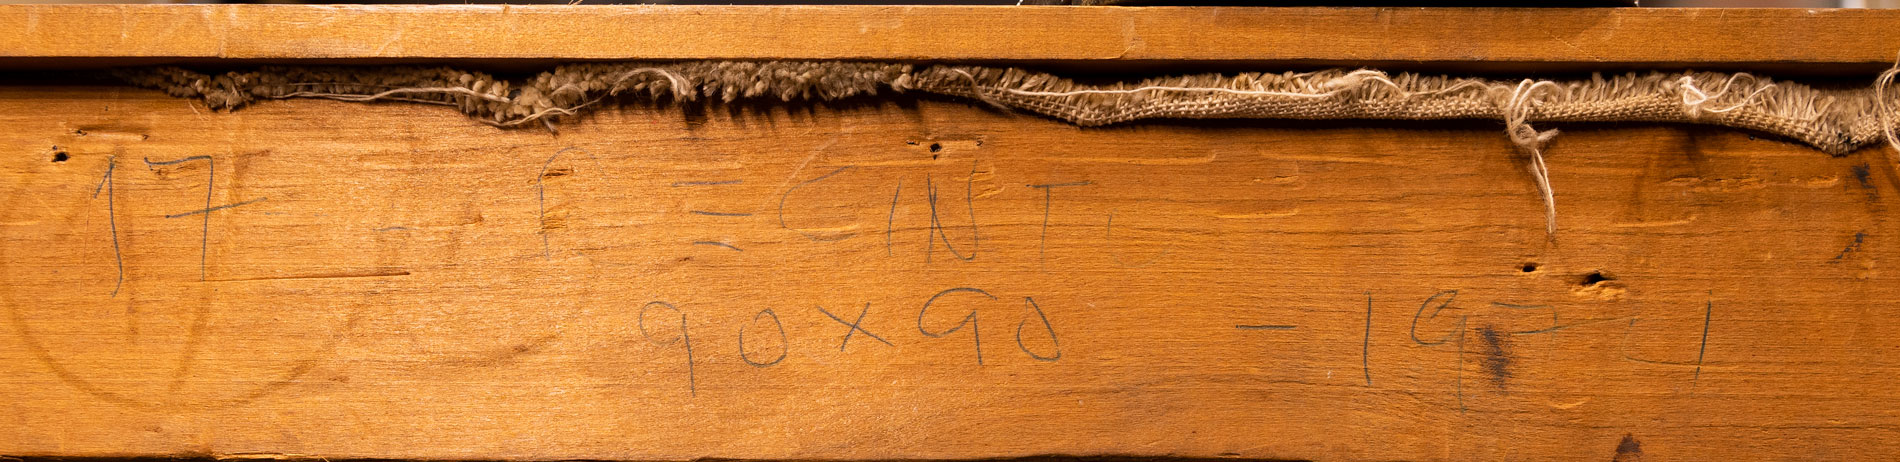 17 = CINT.
90 x 90 - 1974